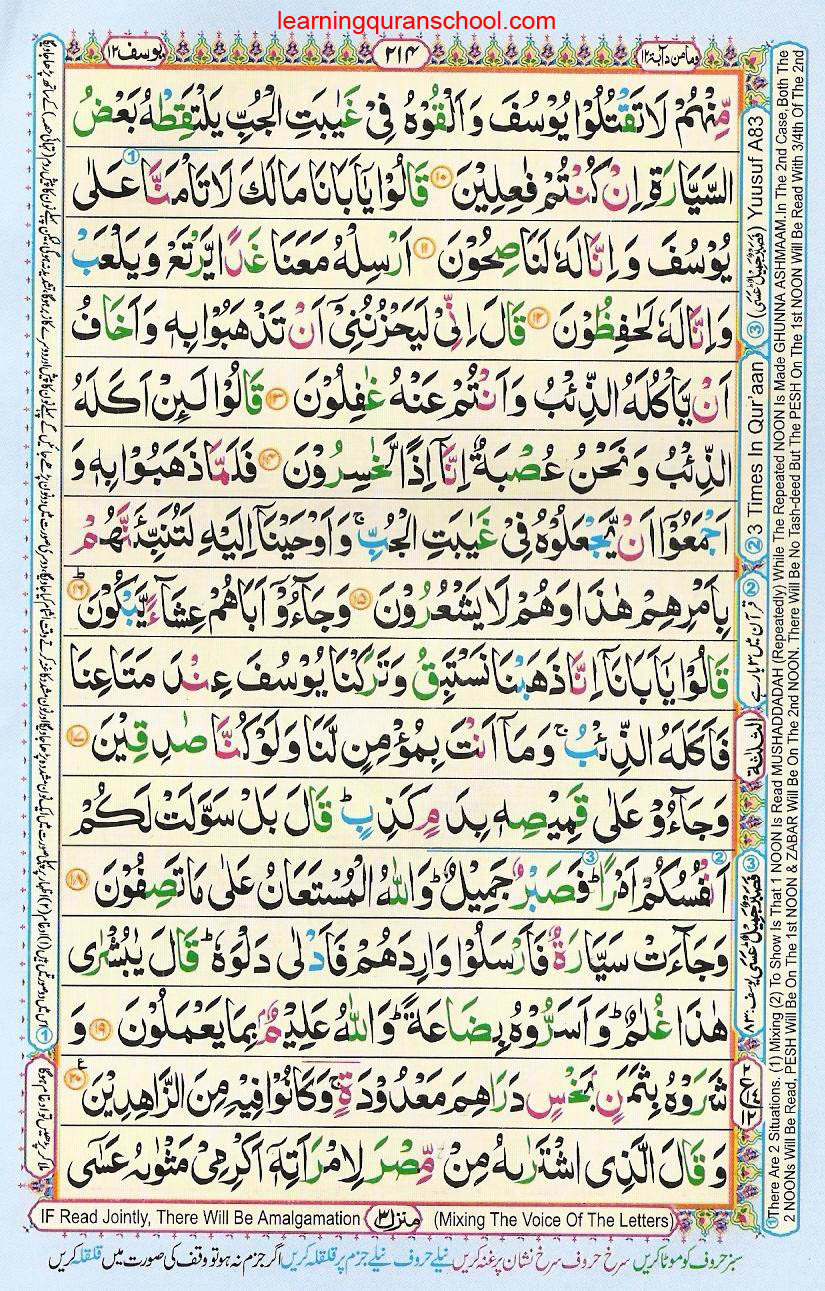 learningquranschool.com
ومامن دآبة ۱۲
۲۱۴
یوسف ۱۲
مِّنْهُمْ لَا تَقْتُلُوْا يُوْسُفَ وَ اَلْقُوْهُ فِيْ غَيٰبَتِ الْجُبِّ يَلْتَقِطْهُ بَعْضُ
السَّيَّارَةِ اِنْ كُنْتُمْ فٰعِلِيْنَ ۱۰ قَالُوْا يٰۤاَبَانَا مَالَكَ لَا تَاْمَنَّا عَلٰى
يُوْسُفَ وَ اِنَّا لَهٗ لَنٰصِحُوْنَ ۱۱ اَرْسِلْهُ مَعَنَا غَدًا يَّرْتَعْ وَيَلْعَبْ
وَاِنَّا لَهٗ لَحٰفِظُوْنَ ۱۲ قَالَ اِنِّيْ لَيَحْزُنُنِيْۤ اَنْ تَذْهَبُوْا بِهٖ وَاَخَافُ
اَنْ يَّاْكُلَهُ الذِّئْبُ وَاَنْتُمْ عَنْهُ غٰفِلُوْنَ ۱۳ قَالُوْا لَئِنْ اَكَلَهُ
الذِّئْبُ وَنَحْنُ عُصْبَةٌ اِنَّاۤ اِذًا لَّخٰسِرُوْنَ ۱۴ فَلَمَّا ذَهَبُوْا بِهٖ وَ
اَجْمَعُوْۤا اَنْ يَّجْعَلُوْهُ فِيْ غَيٰبَتِ الْجُبِّ ۚ وَاَوْحَيْنَاۤ اِلَيْهِ لَتُنَبِّئَنَّهُمْ
بِاَمْرِهِمْ هٰذَا وَهُمْ لَا يَشْعُرُوْنَ ۱۵ وَجَآءُوْۤ اَبَاهُمْ عِشَآءً يَّبْكُوْنَ ؕ ۱۶
قَالُوْا يٰۤاَبَانَاۤ اِنَّا ذَهَبْنَا نَسْتَبِقُ وَتَرَكْنَا يُوْسُفَ عِنْدَ مَتَاعِنَا
فَاَكَلَهُ الذِّئْبُ ۚ وَمَاۤ اَنْتَ بِمُؤْمِنٍ لَّنَا وَلَوْ كُنَّا صٰدِقِيْنَ ۱۷
وَجَآءُوْ عَلٰى قَمِيْصِهٖ بِدَمٍ كَذِبٍ ؕ قَالَ بَلْ سَوَّلَتْ لَكُمْ
اَنْفُسُكُمْ اَمْرًا ؕ فَصَبْرٌ جَمِيْلٌ ؕ وَاللّٰهُ الْمُسْتَعَانُ عَلٰى مَا تَصِفُوْنَ ۱۸
وَجَآءَتْ سَيَّارَةٌ فَاَرْسَلُوْا وَارِدَهُمْ فَاَدْلٰى دَلْوَهٗ ؕ قَالَ يٰبُشْرٰى
هٰذَا غُلٰمٌ ؕ وَاَسَرُّوْهُ بِضَاعَةً ؕ وَاللّٰهُ عَلِيْمٌۢ بِمَا يَعْمَلُوْنَ ۱۹ وَ
شَرَوْهُ بِثَمَنٍۢ بَخْسٍ دَرَاهِمَ مَعْدُوْدَةٍ ۚ وَكَانُوْا فِيْهِ مِنَ الزّٰهِدِيْنَ ۲۰ ع
وَقَالَ الَّذِى اشْتَرٰىهُ مِنْ مِّصْرَ لِامْرَاَتِهٖۤ اَكْرِمِيْ مَثْوٰىهُ عَسٰٓى
② 3 Times In Qur'aan ③ Yuusuf A83
②قرآن میں ۳ بار ہے
الثلثة
①There Are 2 Situations. (1) Mixing (2) To Show Is That 1 NOON Is Read MUSHADDADAH (Repeatedly) While The Repeated NOON Is Made GHUNNA ASHMAAM.In The 2nd Case, Both The
2 NOONs Will Be Read, PESH Will Be On The 1st NOON & ZABAR Will Be On The 2nd NOON. There Will Be No Tash-deed But The PESH On The 1st NOON Will Be Read With 3/4th Of The 2nd
IF Read Jointly, There Will Be Amalgamation منزل ۳ (Mixing The Voice Of The Letters)
سبز حروف کو موٹا کریں سرخ حروف سرخ نشان پر غنہ کریں نیلے حروف نیلے جزم پر قلقلہ کریں اگر جزم نہ ہو تو وقف کی صورت میں قلقلہ کریں